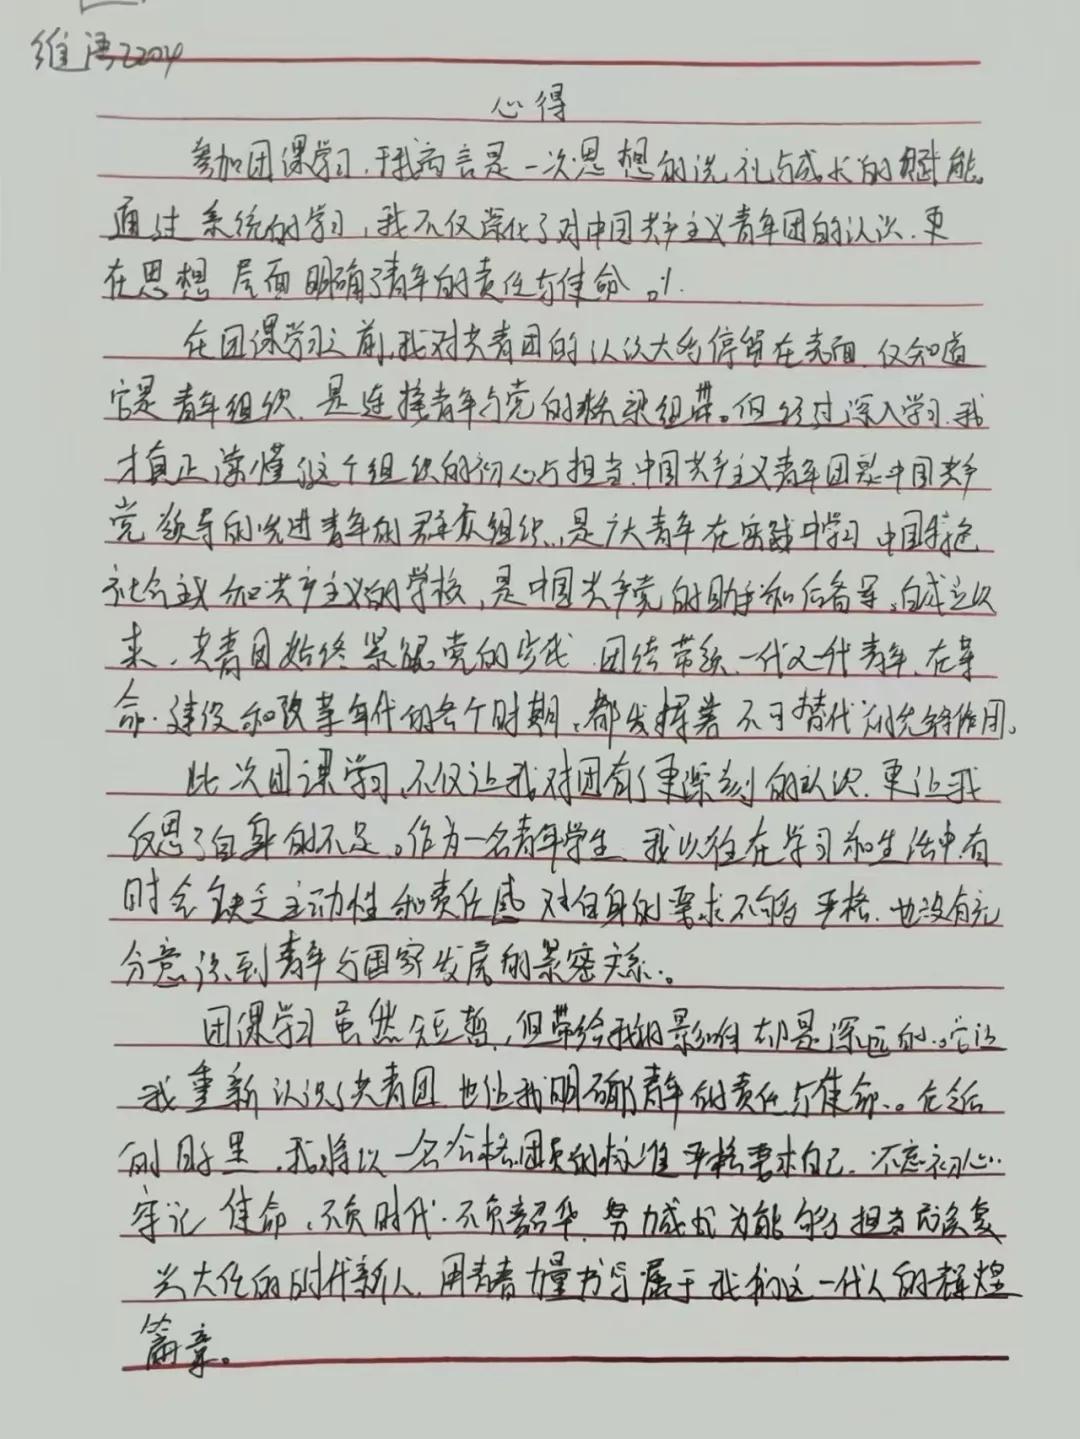 维语2204
心得
参加团课学习,于我而言是一次思想的洗礼与成长的赋能。
通过系统的学习,我不仅深化了对中国共产主义青年团的认识.更
在思想层面明确了青年的责任与使命。
在团课学习之前,我对共青团的认识大多停留在表面.仅知道
它是青年组织.是连接青年与党的桥梁纽带。但经过深入学习.我
才真正读懂这个组织的初心与担当.中国共产主义青年团是中国共产
党领导的先进青年的群众组织,是广大青年在实践中学习中国特色
社会主义和共产主义的学校,是中国共产党的助手和后备军。自成立以
来,共青团始终紧跟党的步伐.团结带领一代又一代青年.在革
命.建设和改革年代的各个时期,都发挥着不可替代的先锋作用。
此次团课学习,不仅让我对团有了更深刻的认识.更让我
反思了自身的不足。作为一名青年学生.我以往在学习和生活中.有
时会缺乏主动性和责任感.对自身的要求不够严格.也没有充
分意识到青年与国家发展的紧密关系。
团课学习虽然短暂,但带给我的影响却是深远的。它让
我重新认识了共青团.也让我明确了青年的责任与使命。在今后
的日子里,我将以一名合格团员的标准严格要求自己.不忘初心.
牢记使命,不负时代.不负韶华.努力成长为能够担当民族复
兴大任的时代新人.用青春力量书写属于我们这一代人的辉煌
篇章。